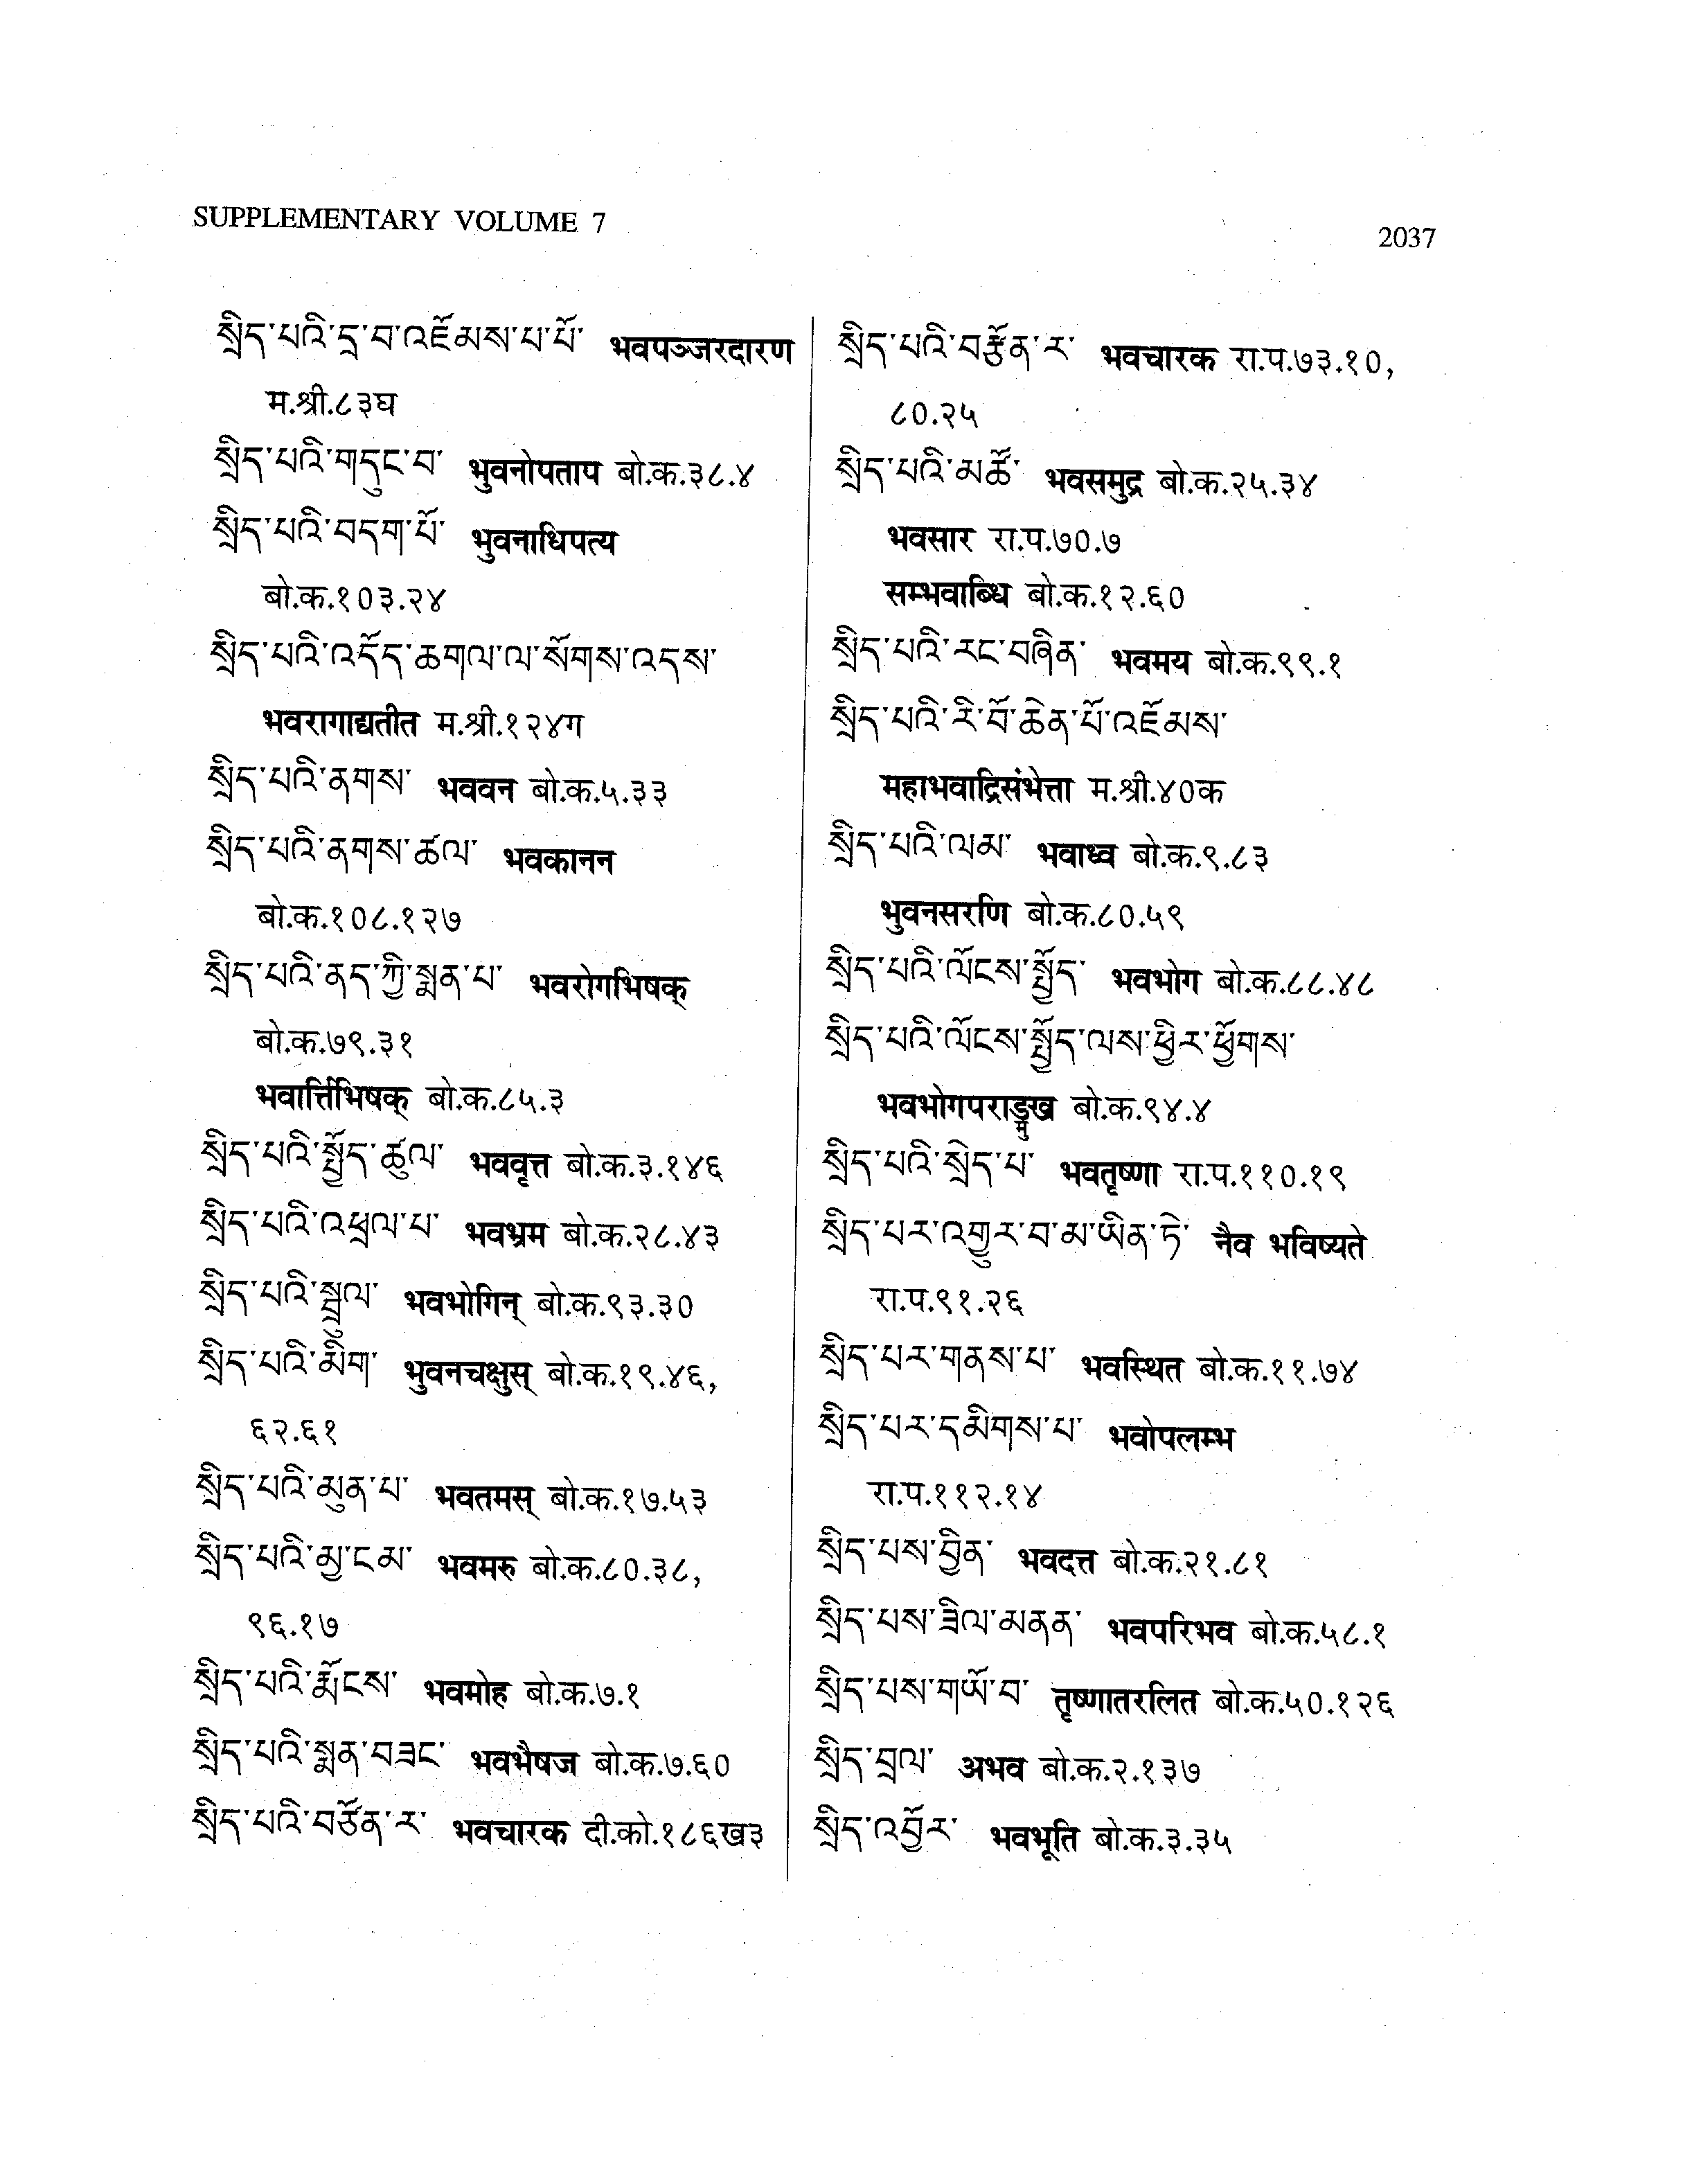 SUPPLEMENTARY VOLUME 7
2037
སྲིད་པའི་དྲ་བ་འཇོམས་པ་པོ་ भवपञ्जरदारण
म.श्री.८३घ
སྲིད་པའི་གདུང་བ་ भुवनोपताप बो.क.३८.४
སྲིད་པའི་བདག་པོ་ भुवनाधिपत्य
बो.क.१०३.२४
སྲིད་པའི་འདོད་ཆགལ་ལ་སོགས་འདས་
भवरागाद्यतीत म.श्री.१२४ग
སྲིད་པའི་ནགས་ भववन बो.क.५.३३
སྲིད་པའི་ནགས་ཚལ་ भवकानन
बो.क.१०८.१२७
སྲིད་པའི་ནད་ཀྱི་སྨན་པ་ भवरोगभिषक्
बो.क.७९.३१
भवार्त्तिभिषक् बो.क.८५.३
སྲིད་པའི་སྤྱོད་ཚུལ་ भववृत्त बो.क.३.१४६
སྲིད་པའི་འཕྲལ་པ་ भवभ्रम बो.क.२८.४३
སྲིད་པའི་སྦྲུལ་ भवभोगिन् बो.क.९३.३०
སྲིད་པའི་མིག་ भुवनचक्षुस् बो.क.१९.४६,
६२.६१
སྲིད་པའི་མུན་པ་ भवतमस् बो.क.१७.५३
སྲིད་པའི་མྱ་ངམ་ भवमरु बो.क.८०.३८,
९६.१७
སྲིད་པའི་རྨོངས་ भवमोह बो.क.७.१
སྲིད་པའི་སྨན་བཟང་ भवभैषज बो.क.७.६०
སྲིད་པའི་བཙོན་ར་ भवचारक दी.को.१८६ख३
སྲིད་པའི་བརྩོན་ར་ भवचारक रा.प.७३.१०,
८०.२५
སྲིད་པའི་མཚོ་ भवसमुद्र बो.क.२५.३४
भवसार रा.प.७०.७
सम्भवाब्धि बो.क.१२.६०
སྲིད་པའི་རང་བཞིན་ भवमय बो.क.९९.१
སྲིད་པའི་རི་བོ་ཆེན་པོ་འཇོམས་
महाभवाद्रिसंभेत्ता म.श्री.४०क
སྲིད་པའི་ལམ་ भवाध्व बो.क.९.८३
भुवनसरणि बो.क.८०.५९
སྲིད་པའི་ལོངས་སྤྱོད་ भवभोग बो.क.८८.४८
སྲིད་པའི་ལོངས་སྤྱོད་ལས་ཕྱིར་ཕྱོགས་
भवभोगपराङ्मुख बो.क.९४.४
སྲིད་པའི་སྲེད་པ་ भवतृष्णा रा.प.११०.१९
སྲིད་པར་འགྱུར་བ་མ་ཡིན་ཏེ་ नैव भविष्यते
रा.प.९१.२६
སྲིད་པར་གནས་པ་ भवस्थित बो.क.११.७४
སྲིད་པར་དམིགས་པ་ भवोपलम्भ
रा.प.११२.१४
སྲིད་པས་བྱིན་ भवदत्त बो.क.२१.८१
སྲིད་པས་ཟིལ་མནན་ भवपरिभव बो.क.५८.१
སྲིད་པས་གཡོ་བ་ तृष्णातरलित बो.क.५०.१२६
སྲིད་བྲལ་ अभव बो.क.२.१३७
སྲིད་འབྱོར་ भवभूति बो.क.३.३५